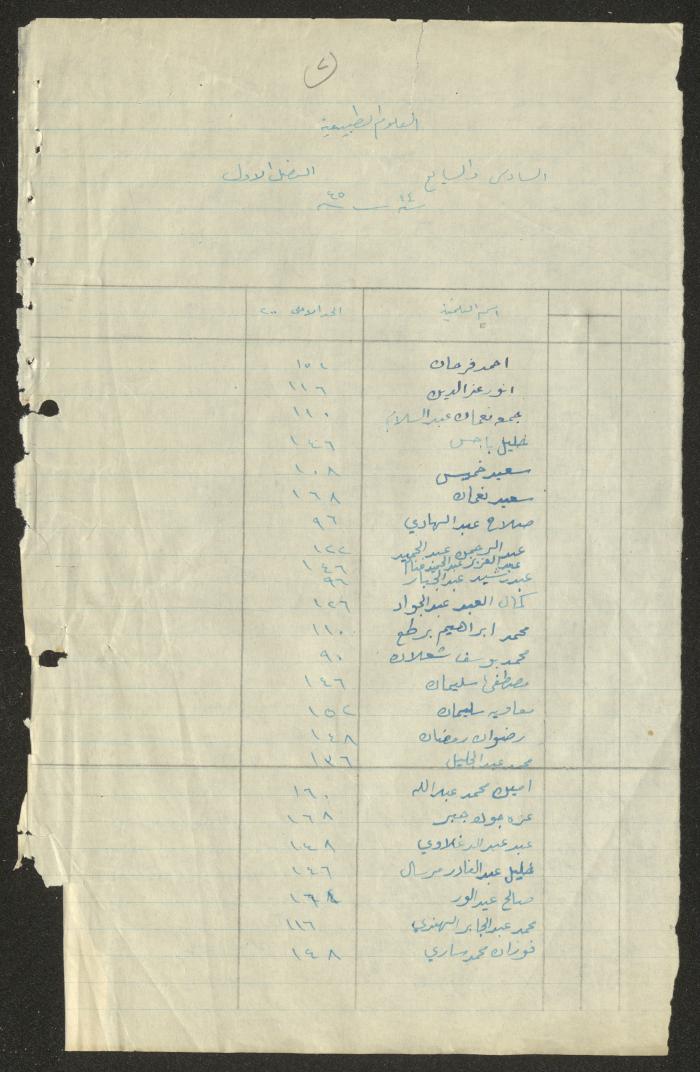 ٢
العلوم الطبيعية
السادس والسابع الفصل الاول
سنة ٤٤ ــ سنة ٤٥
اسم التلميذ الحد الاعلى ٢٠٠
احمد فرحان ١٥٤
انور عز الدين ١١٦
جمعه نعمان عبد السلام ١١٠
خليل باجس ١٤٦
سعيد خميس ١٠٨
سعيد نعمان ١٦٨
صلاح عبد الهادي ٩٦
عبد الرحمن عبد الحميد ١٢٢
عبد العزيز عبد الحميد ١٤٦
عبد رشيد عبد الجبار ٩٦
كمال العبد عبد الجواد ١٢٦
محمد ابراهيم برطع ١١٠
محمد يوسف شعلان ٩٠
مصطفى سليمان ١٤٦
معاويه سليمان ١٥٢
رضوان رمضان ١٤٨
محمد عبد الجليل ١٣٦
امين محمد عبد الله ١٦٠
عزه جبر ١٦٨
عبد عبد الدغلاوي ١٤٨
خليل عبد القادر مرسال ١٤٦
صالح
محمد عبد الجابر الهندي ١١٦
فوزان محمد ساري ١٤٨